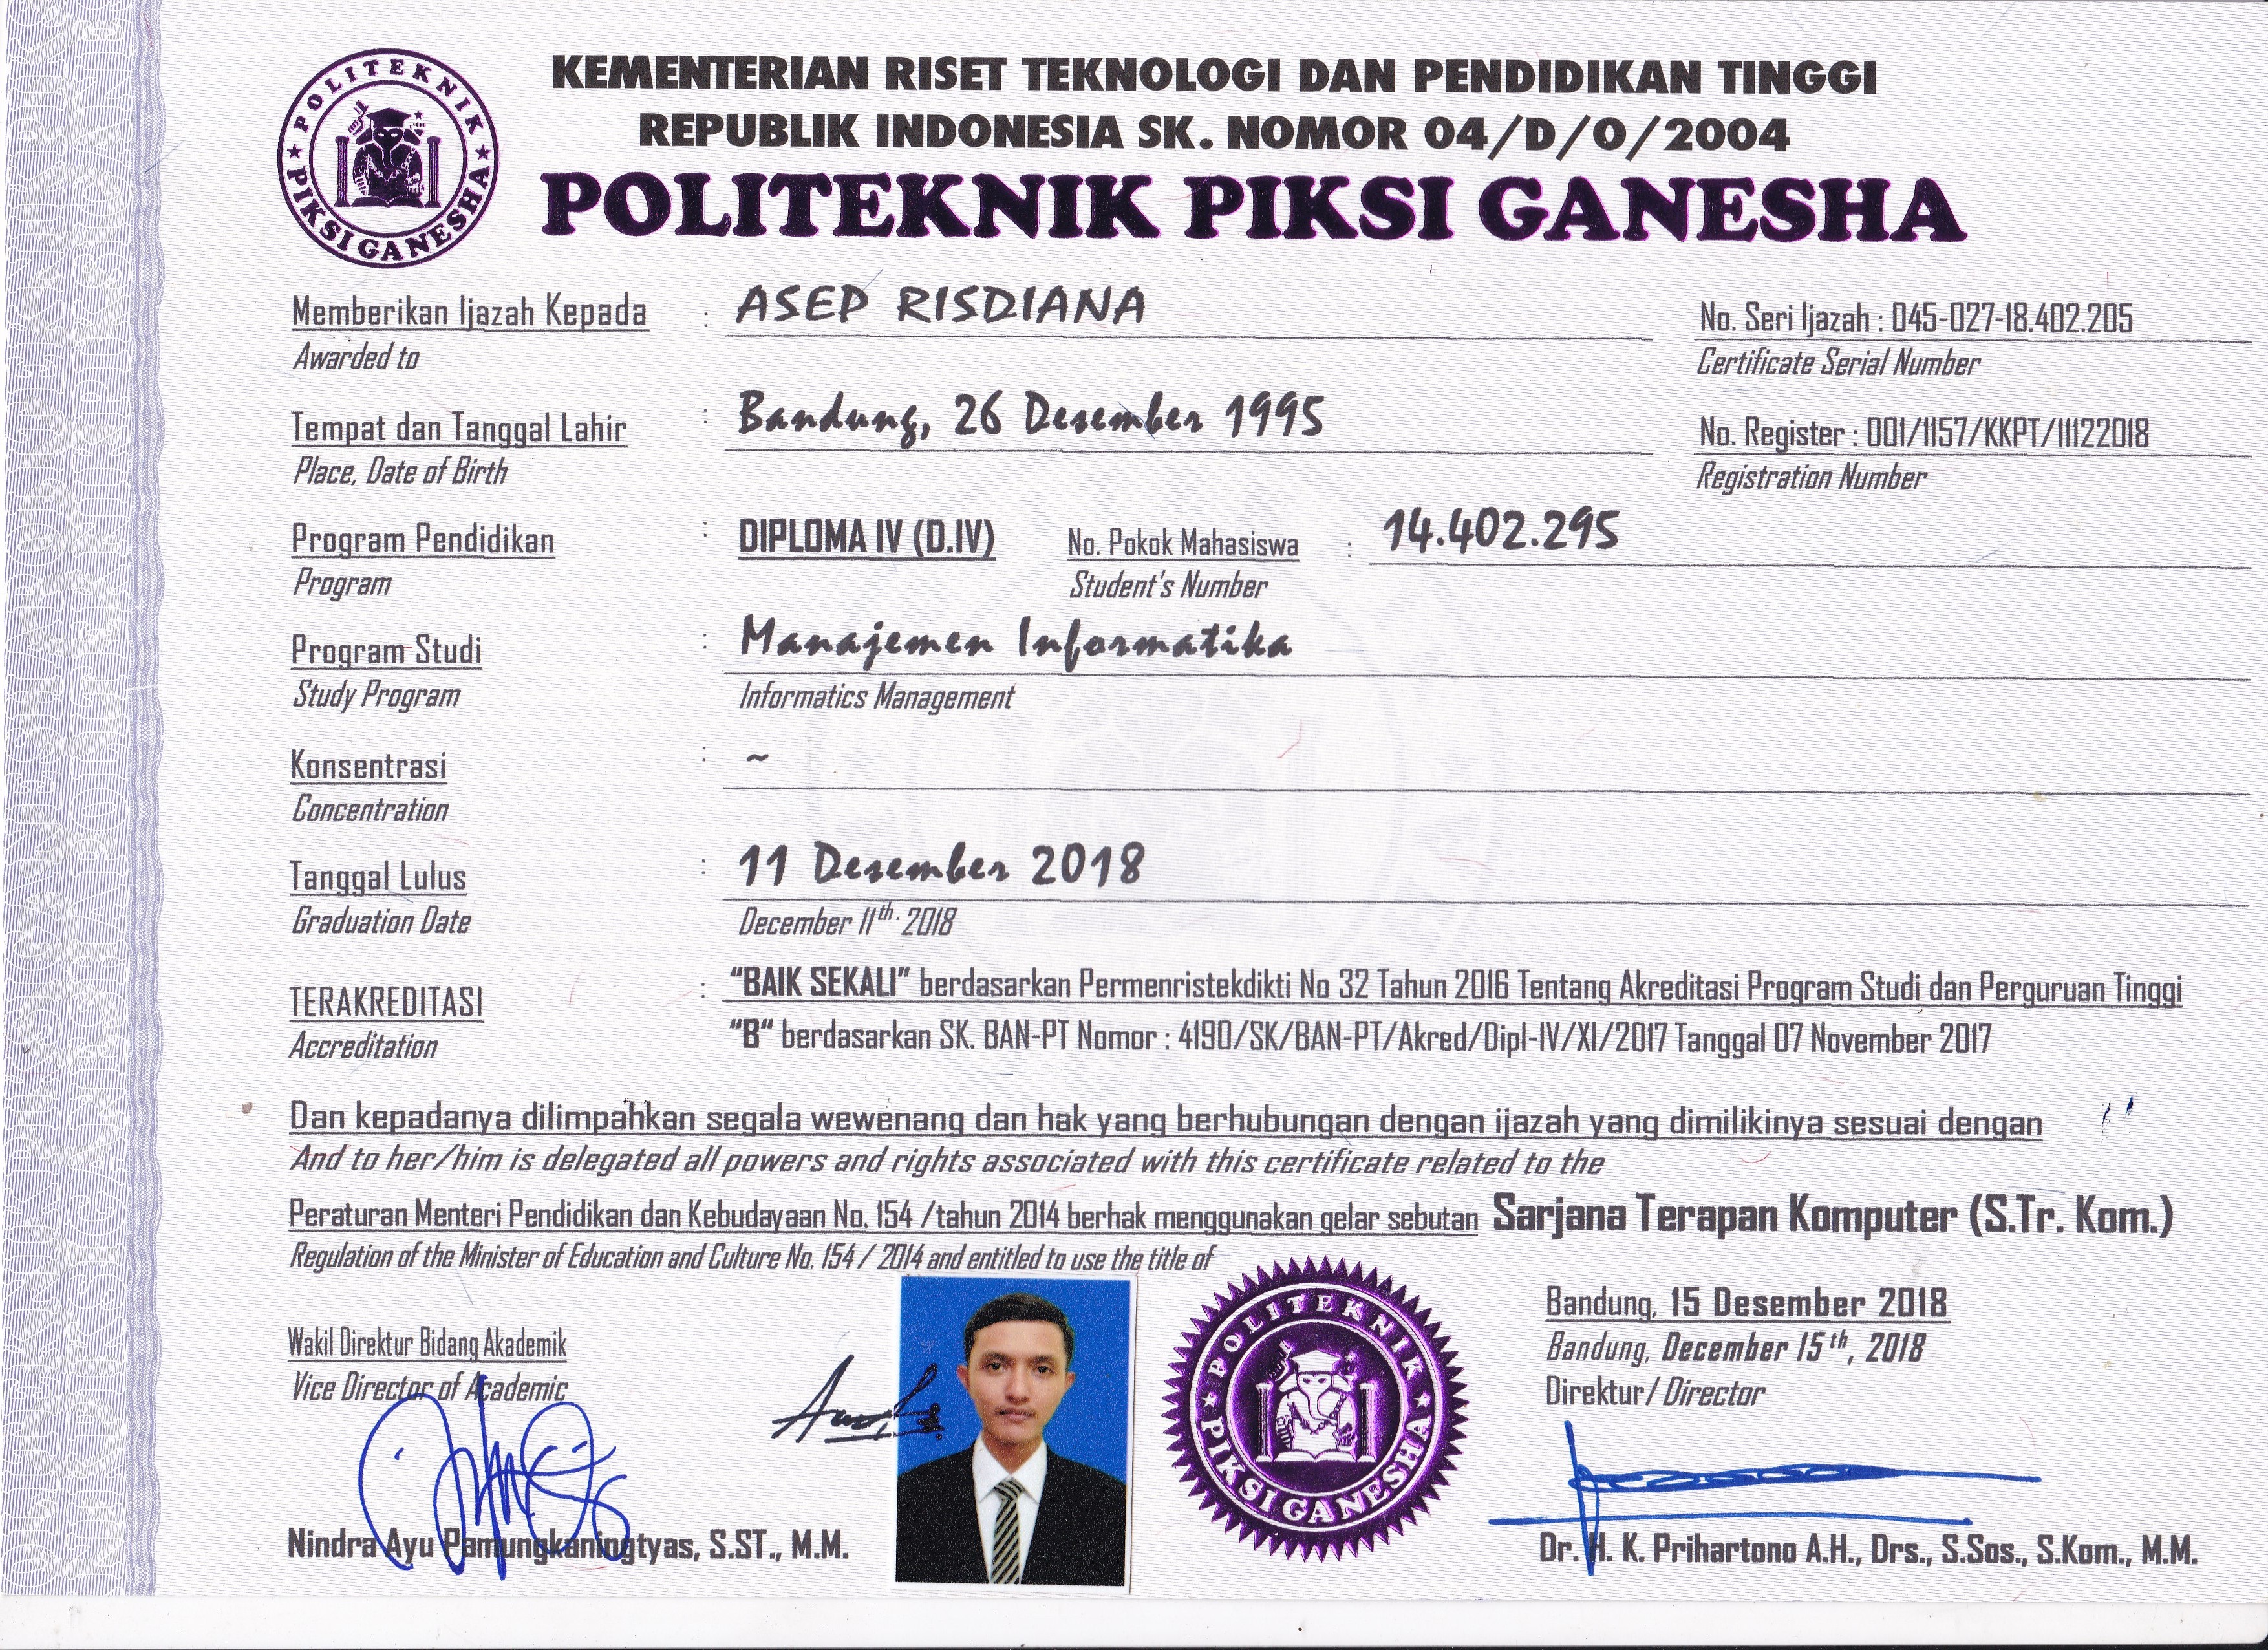 POLITEKNIK PIKSI GANESHA
KEMENTERIAN RISET TEKNOLOGI DAN PENDIDIKAN TINGGI
REPUBLIK INDONESIA SK. NOMOR 04/D/O/2004
POLITEKNIK PIKSI GANESHA
Memberikan Ijazah Kepada : ASEP RISDIANA
Awarded to
No. Seri Ijazah : 045-027-18.402.205
Certificate Serial Number
Tempat dan Tanggal Lahir : Bandung, 26 Desember 1995
Place, Date of Birth
No. Register : 001/1157/KKPT/11122018
Registration Number
Program Pendidikan : DIPLOMA IV (D.IV) No. Pokok Mahasiswa : 14.402.295
Program Student's Number
Program Studi : Manajemen Informatika
Study Program Informatics Management
Konsentrasi : ~
Concentration
Tanggal Lulus : 11 Desember 2018
Graduation Date December 11th. 2018
TERAKREDITASI : “BAIK SEKALI” berdasarkan Permenristekdikti No 32 Tahun 2016 Tentang Akreditasi Program Studi dan Perguruan Tinggi
Accreditation “B“ berdasarkan SK. BAN-PT Nomor : 4190/SK/BAN-PT/Akred/Dipl-IV/XI/2017 Tanggal 07 November 2017
Dan kepadanya dilimpahkan segala wewenang dan hak yang berhubungan dengan ijazah yang dimilikinya sesuai dengan
And to her/him is delegated all powers and rights associated with this certificate related to the
Peraturan Menteri Pendidikan dan Kebudayaan No. 154 /tahun 2014 berhak menggunakan gelar sebutan Sarjana Terapan Komputer (S.Tr. Kom.)
Regulation of the Minister of Education and Culture No. 154 / 2014 and entitled to use the title of
Wakil Direktur Bidang Akademik
Vice Director of Academic
Nindra Ayu Pamungkaningtyas, S.ST., M.M.
POLITEKNIK PIKSI GANESHA
Bandung, 15 Desember 2018
Bandung, December 15th, 2018
Direktur/ Director
Dr. H. K. Prihartono A.H., Drs., S.Sos., S.Kom., M.M.